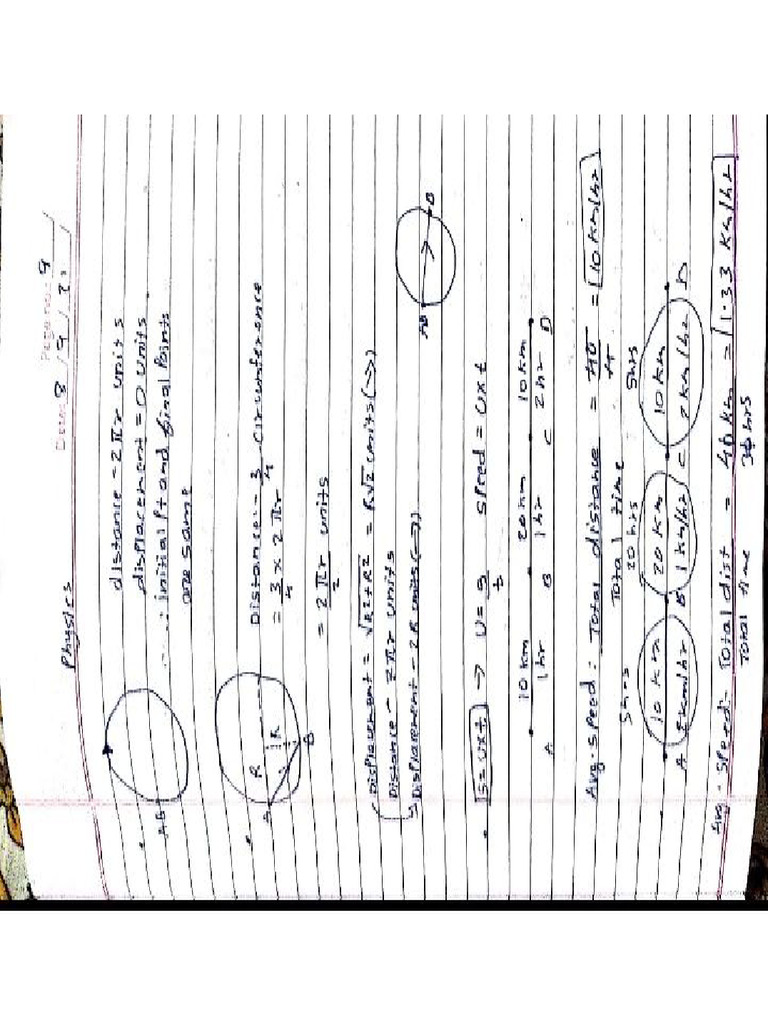 Page no: 9
Date: 8/9/2
Physics
AB
distance - 2πr units
displacement = 0 units
∴ initial Pt and final Points
are same
A
B
R
R
Distance - 3/4 circumference
= 3/4 x 2πr
= 2πr/2 units
Displacement = √R²+R² = R√2 units (→)
Distance - 2πr units
Displacement - 2R units (→)
AB
B
S=Uxt → U = s/t speed = Uxt
10 km 20 km 10 km
1hr 1hr 2hr
A B C D
Avg. speed = Total distance / Total time = 40/4 = 10 km/hr
5hrs 20hrs 5hrs
10 km 20 km 10 km
A 2 km/hr B 1 km/hr C 2 km/hr D
Avg - Speed - Total dist / Total time = 40 km / 30 hrs = 1.33 km/hr